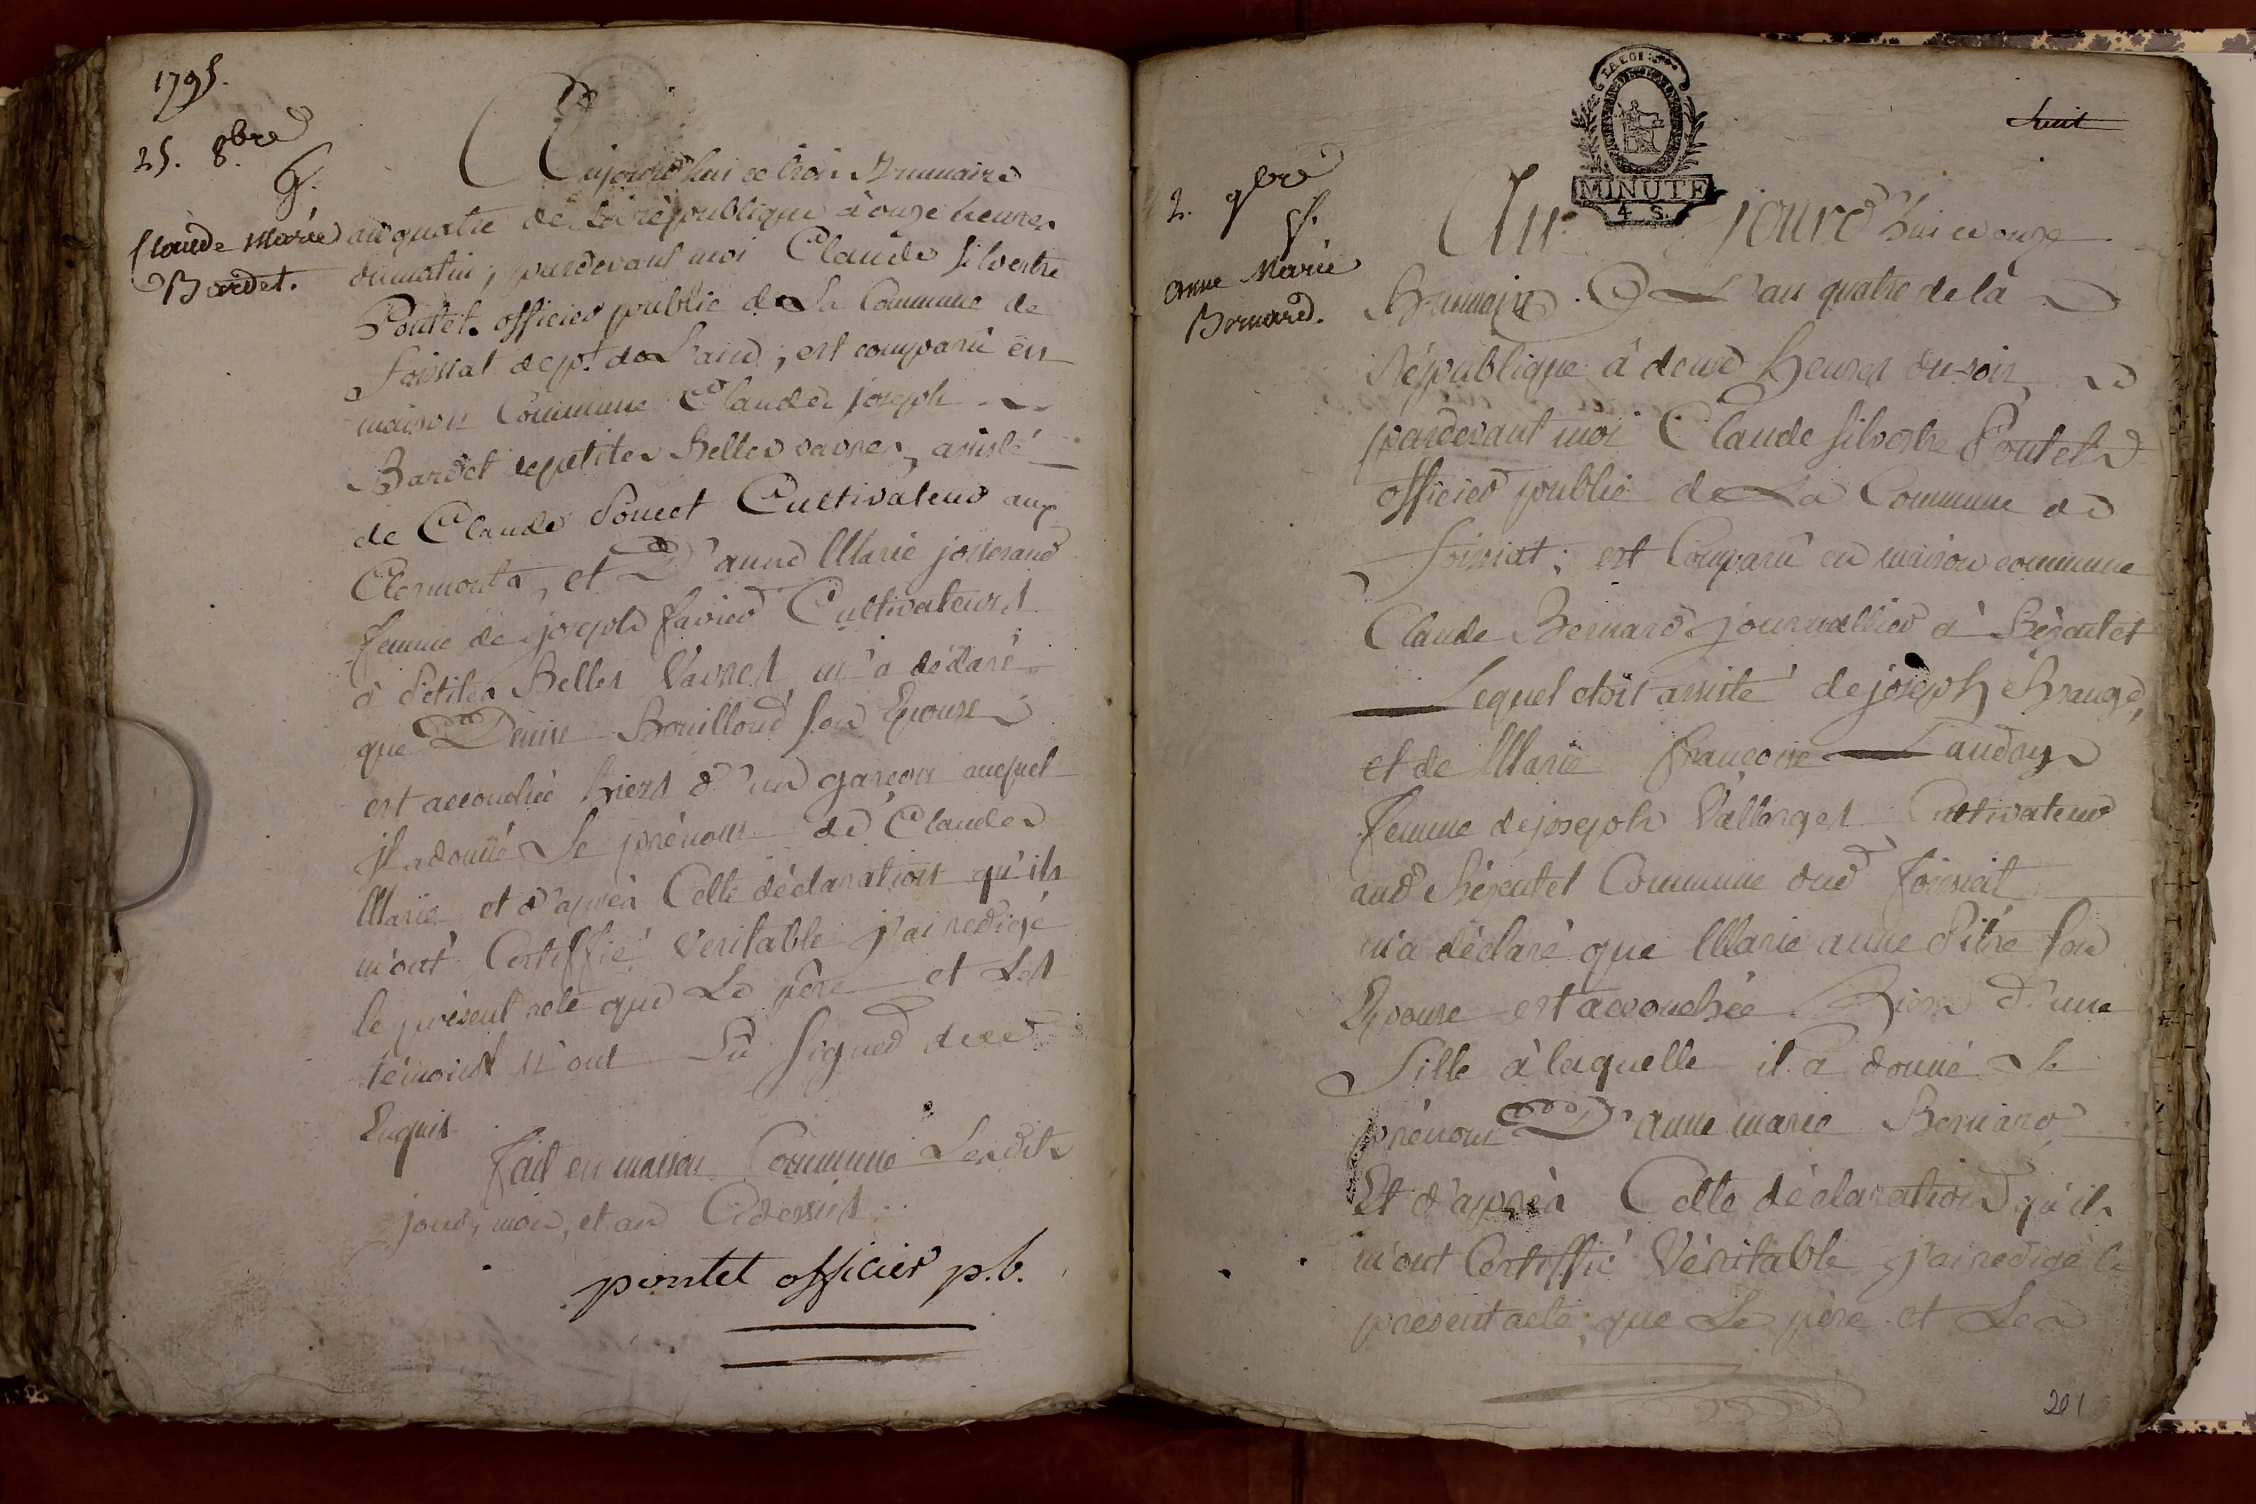 1795.
25. 8.bre
G.
Claude Marie
Bardet.
Aujourd'hui ce trois Brumaire
an quatre de la république à onze heures
du matin, pardevant moi Claude Silvestre
Poutet officier public de La Commune de
Foissiat dep.t de Lain, est comparû en
maison Commune Claude joseph
Bardet de petites Belles vavres, assisté
de Claude Poncet Cultivateur aux
Clermonts, et D'anne Marie josserand
femme de joseph favier Cultivateurs
à Petites Belles Vavres m'a déclaré
que Denise Bouilloud son Epouse
est accouchée hiers d'un garçon auquel
il a donné Le prénom de Claude
Marie et d'après Cette déclaration qu'ils
m'ont Certiffié Veritable j'ai redigé
le présent acte que Le père et Les
témoins n'ont Sù signer de ce
Enquis
fait en maison Commune Lesdits
jour, mois, et an Cidessus
poutet officier p.b.
MINUTE
4 S.
huit
2. 9bre
f.
anne Marie
Bernard.
Aujourd'hui ce onze
Brumaire L'an quatre de la
République à deux heures du soir
pardevant moi Claude Silvestre Poutet
officier public de La Commune de
Foissiat; est Comparû en maison commune
Claude Bernard journallier à
Lequel etoit assisté de joseph
et de Marie françoise Laudry
femme de joseph Cultivateur
Commune dud Foissiat
m'a déclaré que Marie anne Pitre son
Epouse est accouchée hiers d'une
Fille à laquelle il a donné le
prénom D'anne marie Bernard
Et d'après Cette déclaration qu'ils
m'ont Certiffié Véritable j'ai redigé le
présent acte, que Le père et Les
201